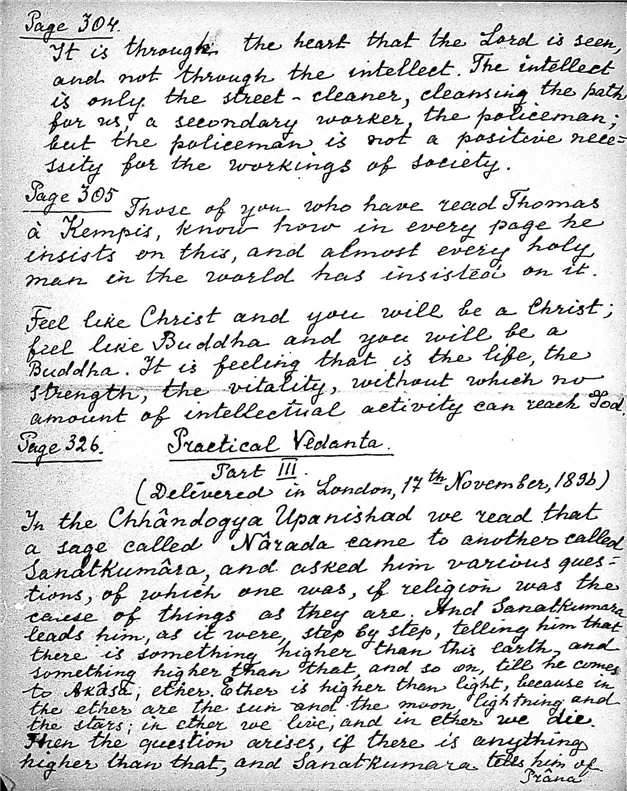 Page 304.
It is through the heart that the Lord is seen,
and not through the intellect. The intellect
is only the street-cleaner, cleansing the path
for us, a secondary worker, the policeman;
but the policeman is not a positive nece=
ssity for the workings of society.
Page 305
Those of you who have read Thomas
à Kempis, know how in every page he
insists on this, and almost every holy
man in the world has insisted on it.
Feel like Christ and you will be a Christ;
feel like Buddha and you will be a
Buddha. It is feeling that is the life, the
strength, the vitality, without which no
amount of intellectual activity can reach God.
Page 326. Practical Vedanta.
Part III.
(Delivered in London, 17th November, 1896)
In the Chhândogya Upanishad we read that
a sage called Nârada came to another called
Sanatkumâra, and asked him various ques=
tions, of which one was, if religion was the
cause of things as they are. And Sanatkumara
leads him, as it were, step by step, telling him that
there is something higher than this earth, and
something higher than that, and so on, till he comes
to Akâsa, ether. Ether is higher than light, because in
the ether are the sun and the moon, lightning and
the stars; in ether we live, and in ether we die.
Then the question arises, if there is anything
higher than that, and Sanatkumara tells him of
Prâna